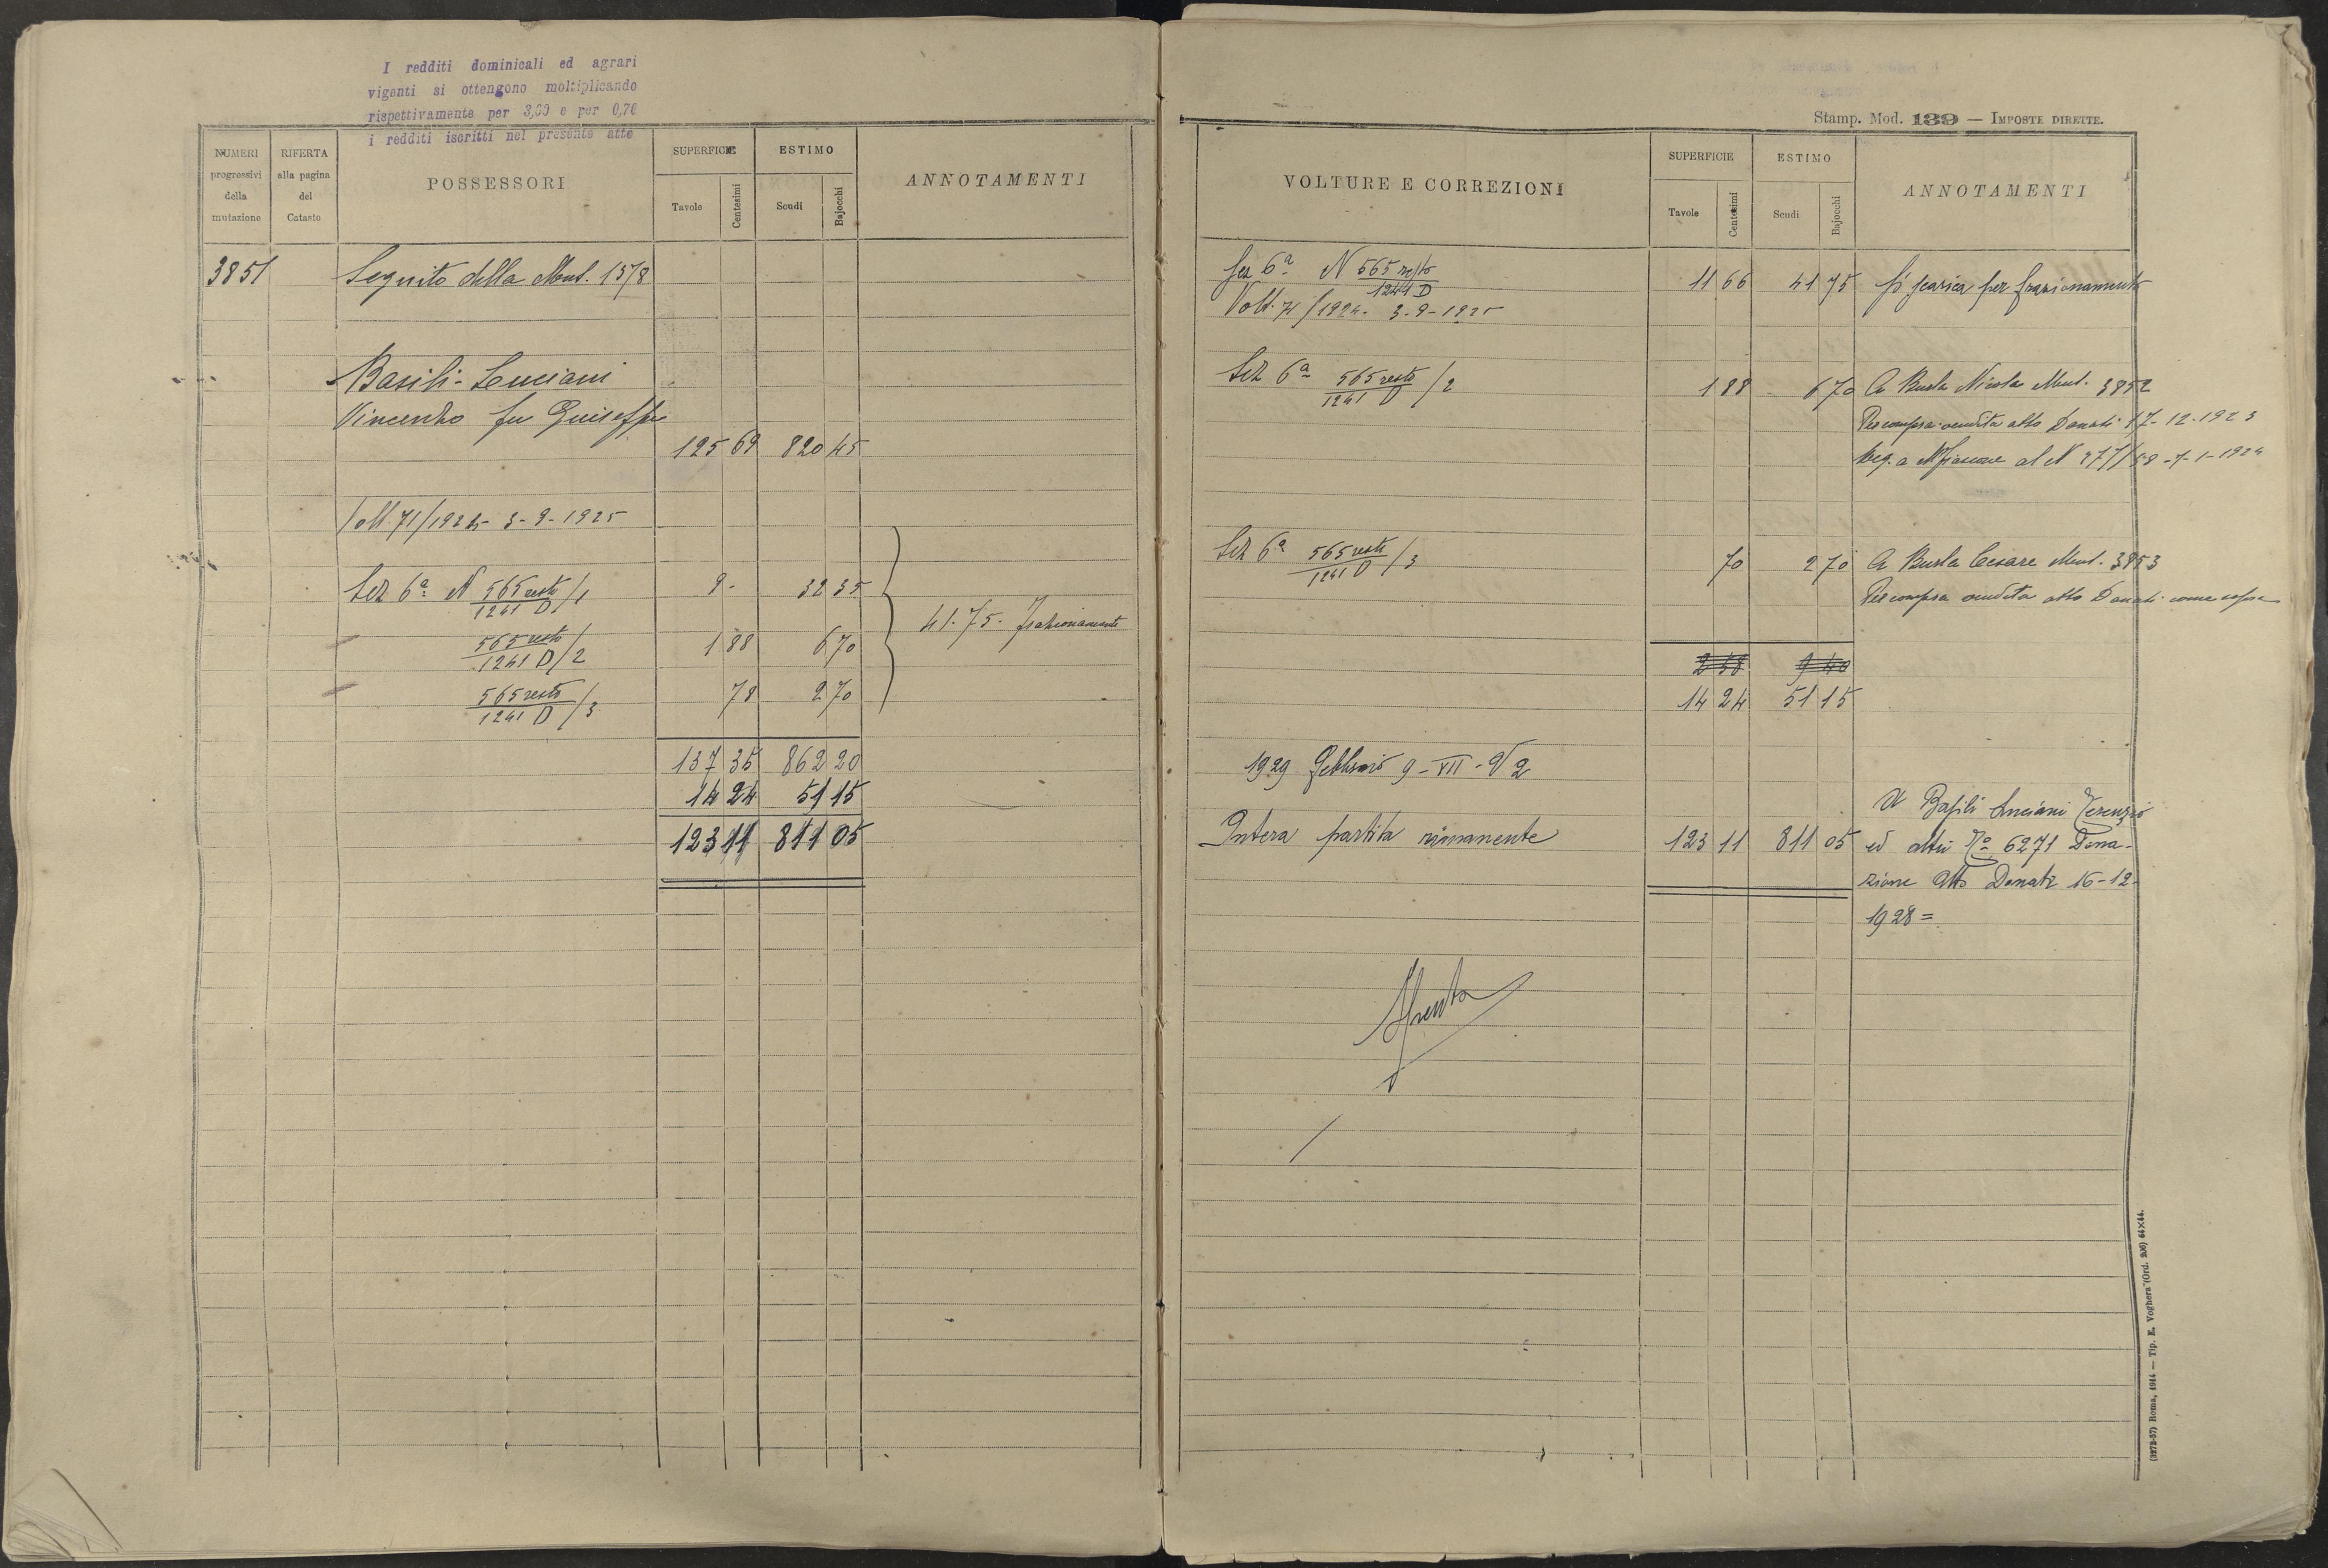 I redditi dominicali ed agrari
vigenti si ottengono moltiplicando
rispettivamente per 3,60 e per 0,70
i redditi iscritti nel presente atto
NUMERI progressivi della mutazione
RIFERTA alla pagina del Catasto
POSSESSORI
SUPERFICIE
Tavole Centesimi
ESTIMO
Scudi Bajocchi
ANNOTAMENTI
3851 Seguito della Mut. 1578
Basili-Luciani
Vincenzo fu Giuseppe
125 69 820 45
Volt. 71/1924 - 3-9-1925
Sez 6ª N 565 resto/1241 D/1 9 - 32 35
565 resto/1241 D/2 1 88 6 70
41-75- Frazionamento
565 resto/1241 D/3 78 2 70
137 35 862 20
14 24 51 15
123 11 811 05
Stamp. Mod. 139 — IMPOSTE DIRETTE.
VOLTURE E CORREZIONI
SUPERFICIE
Tavole Centesimi
ESTIMO
Scudi Bajocchi
ANNOTAMENTI
Sez 6ª N 565 resto/1241 D 11 66 41 75 Si scarica per frazionamento
Volt. 71/1924 - 3-9-1925
Sez 6ª 565 resto/1241 D/2 1 88 6 70 A Burla Nicola Mut. 3852
Per compra vendita atto Donati 17-12-1923
Reg. a Mfiascone al N 277 - 7-1-1924
Sez 6ª 565 resto/1241 D/3 70 2 70 A Burla Cesare Mut. 3853
Per compra vendita atto Donati come sopra
2 58 9 40
14 24 51 15
1929 Febbraio 9-VII-V 2
Intera partita rimanente 123 11 811 05
A Basili Luciani Terenzio
ed altri Nº 6271 Dona-
zione Atto Donati 16-12-
1928=
Spenta
(3272-57) Roma, 1914 — Tip. E. Voghera (Ord. 206) 64×44.